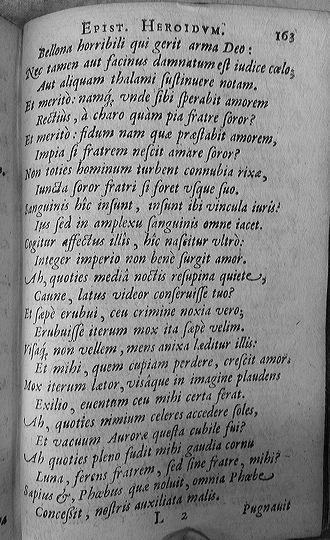 EPIST. HEROIDVM. 163
Bellona horribili qui gerit arma Deo:
Nec tamen aut facinus damnatum est iudice cœlo;
Aut aliquam thalami sustinuere notam.
Et meritò: namq; vnde sibi sperabit amorem
Rectius, à charo quàm pia fratre soror?
Et meritò: fidum nam quæ præstabit amorem,
Impia si fratrem nescit amare soror?
Non toties hominum turbent connubia rixæ,
Iuncta soror fratri si foret vsque suo.
Sanguinis hîc insunt, insunt ibi vincula iuris:
Ius sed in amplexu sanguinis omne iacet.
Cogitur affectus illit, hîc nascitur vltrò:
Integer imperio non benè surgit amor.
Ah, quoties mediâ noctis resupina quiete,
Caune, latus videor conseruisse tuo?
Et sæpè erubui, ceu crimine noxia vero;
Erubuisse iterum mox ita sæpè velim.
Visaq; non vellem, mens anixa læditur illis:
Et mihi, quem cupiam perdere, crescit amor.
Mox iterum lætor, visâque in imagine plaudens
Exilio, euentum ceu mihi certa ferat.
Ah, quoties nimium celeres accedere soles,
Et vacuum Auroræ questa cubile fui?
Ah quoties pleno fudit mihi gaudia cornu
Luna, ferens fratrem, sed sine fratre, mihi?
Sapius &, Phœbus quæ noluit, omnia Phœbe
Concessit, nostris auxiliata malis.
L 2 Pugnauit